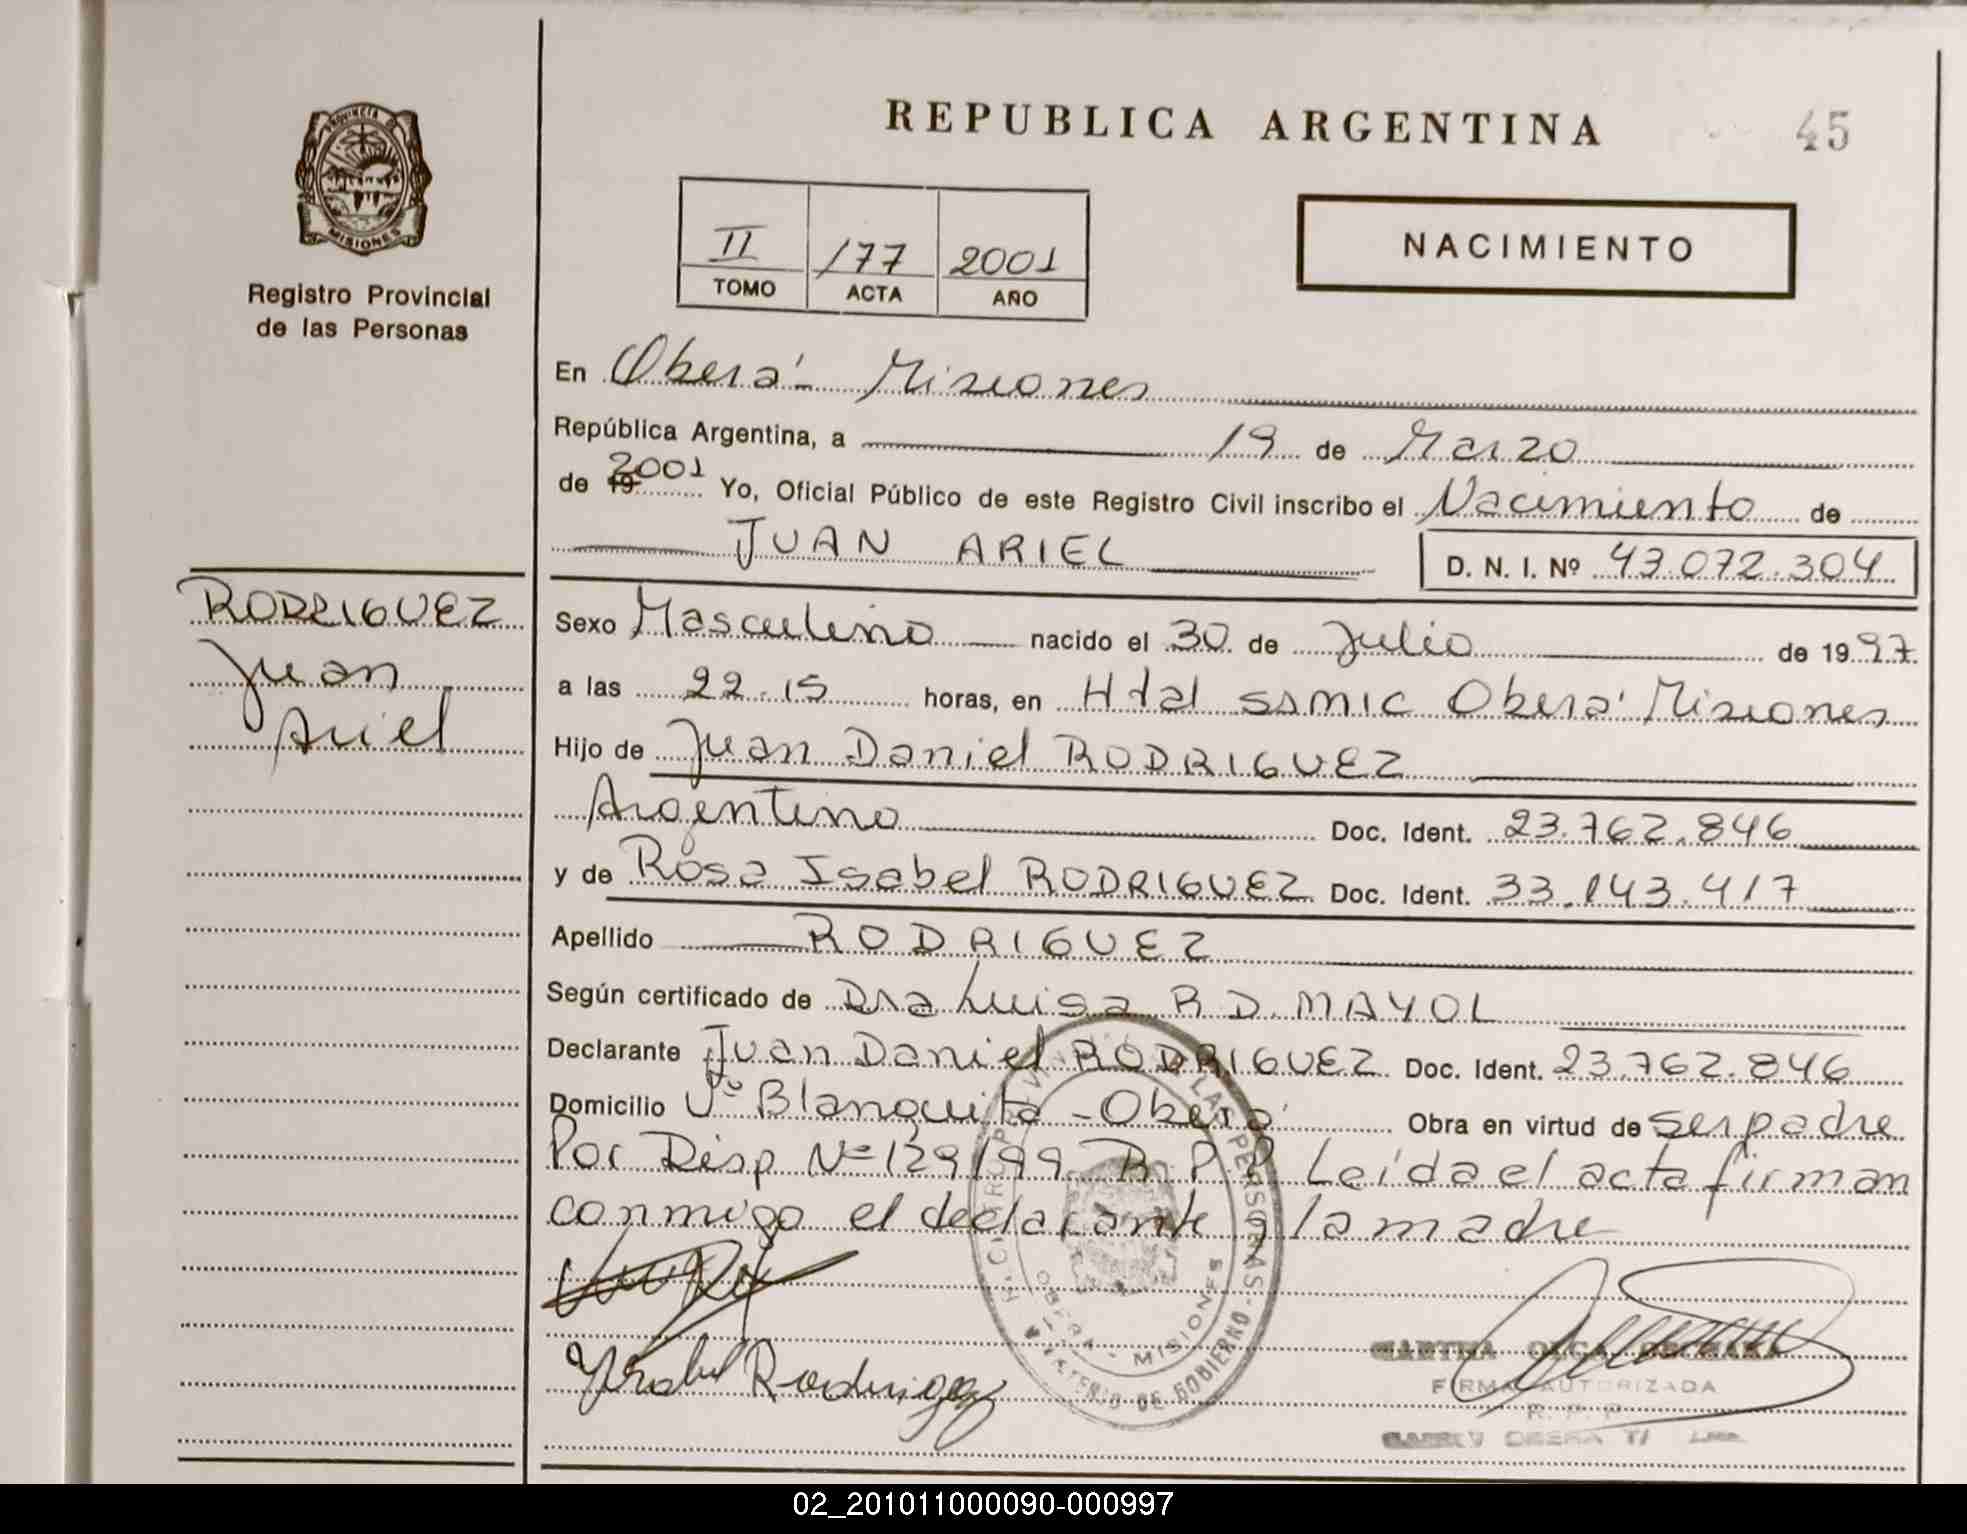 PROVINCIA DE
MISIONES
Registro Provincial
de las Personas
REPUBLICA ARGENTINA 45
II 177 2001
TOMO ACTA AÑO
NACIMIENTO
En Oberá - Misiones
República Argentina, a 19 de Marzo
de 19 2001 Yo, Oficial Público de este Registro Civil inscribo el Nacimiento de
JUAN ARIEL D. N. I. Nº 43.072.304
RODRIGUEZ
Juan
Ariel
Sexo Masculino nacido el 30 de Julio de 1997.
a las 22.15 horas, en Htal SAMIC Oberá Misiones
Hijo de Juan Daniel RODRIGUEZ
Argentino Doc. Ident. 23.762.846
y de Rosa Isabel RODRIGUEZ Doc. Ident. 33.143.417
Apellido RODRIGUEZ
Según certificado de Dra Luisa R D. MAYOL
Declarante Juan Daniel RODRIGUEZ Doc. Ident. 23.762.846
Domicilio Vº Blanquita - Oberá Obra en virtud de ser padre
Por Disp Nº 129/99 R.P.P. Leída el acta firman
conmigo el declarante y la madre
Ysabel Rodriguez
LAS PERSONAS - MINISTERIO DE GOBIERNO
OBERA - MISIONES
MARTHA OLGA
FIRMA AUTORIZADA
R. P. P.
OBERA
02_201011000090-000997